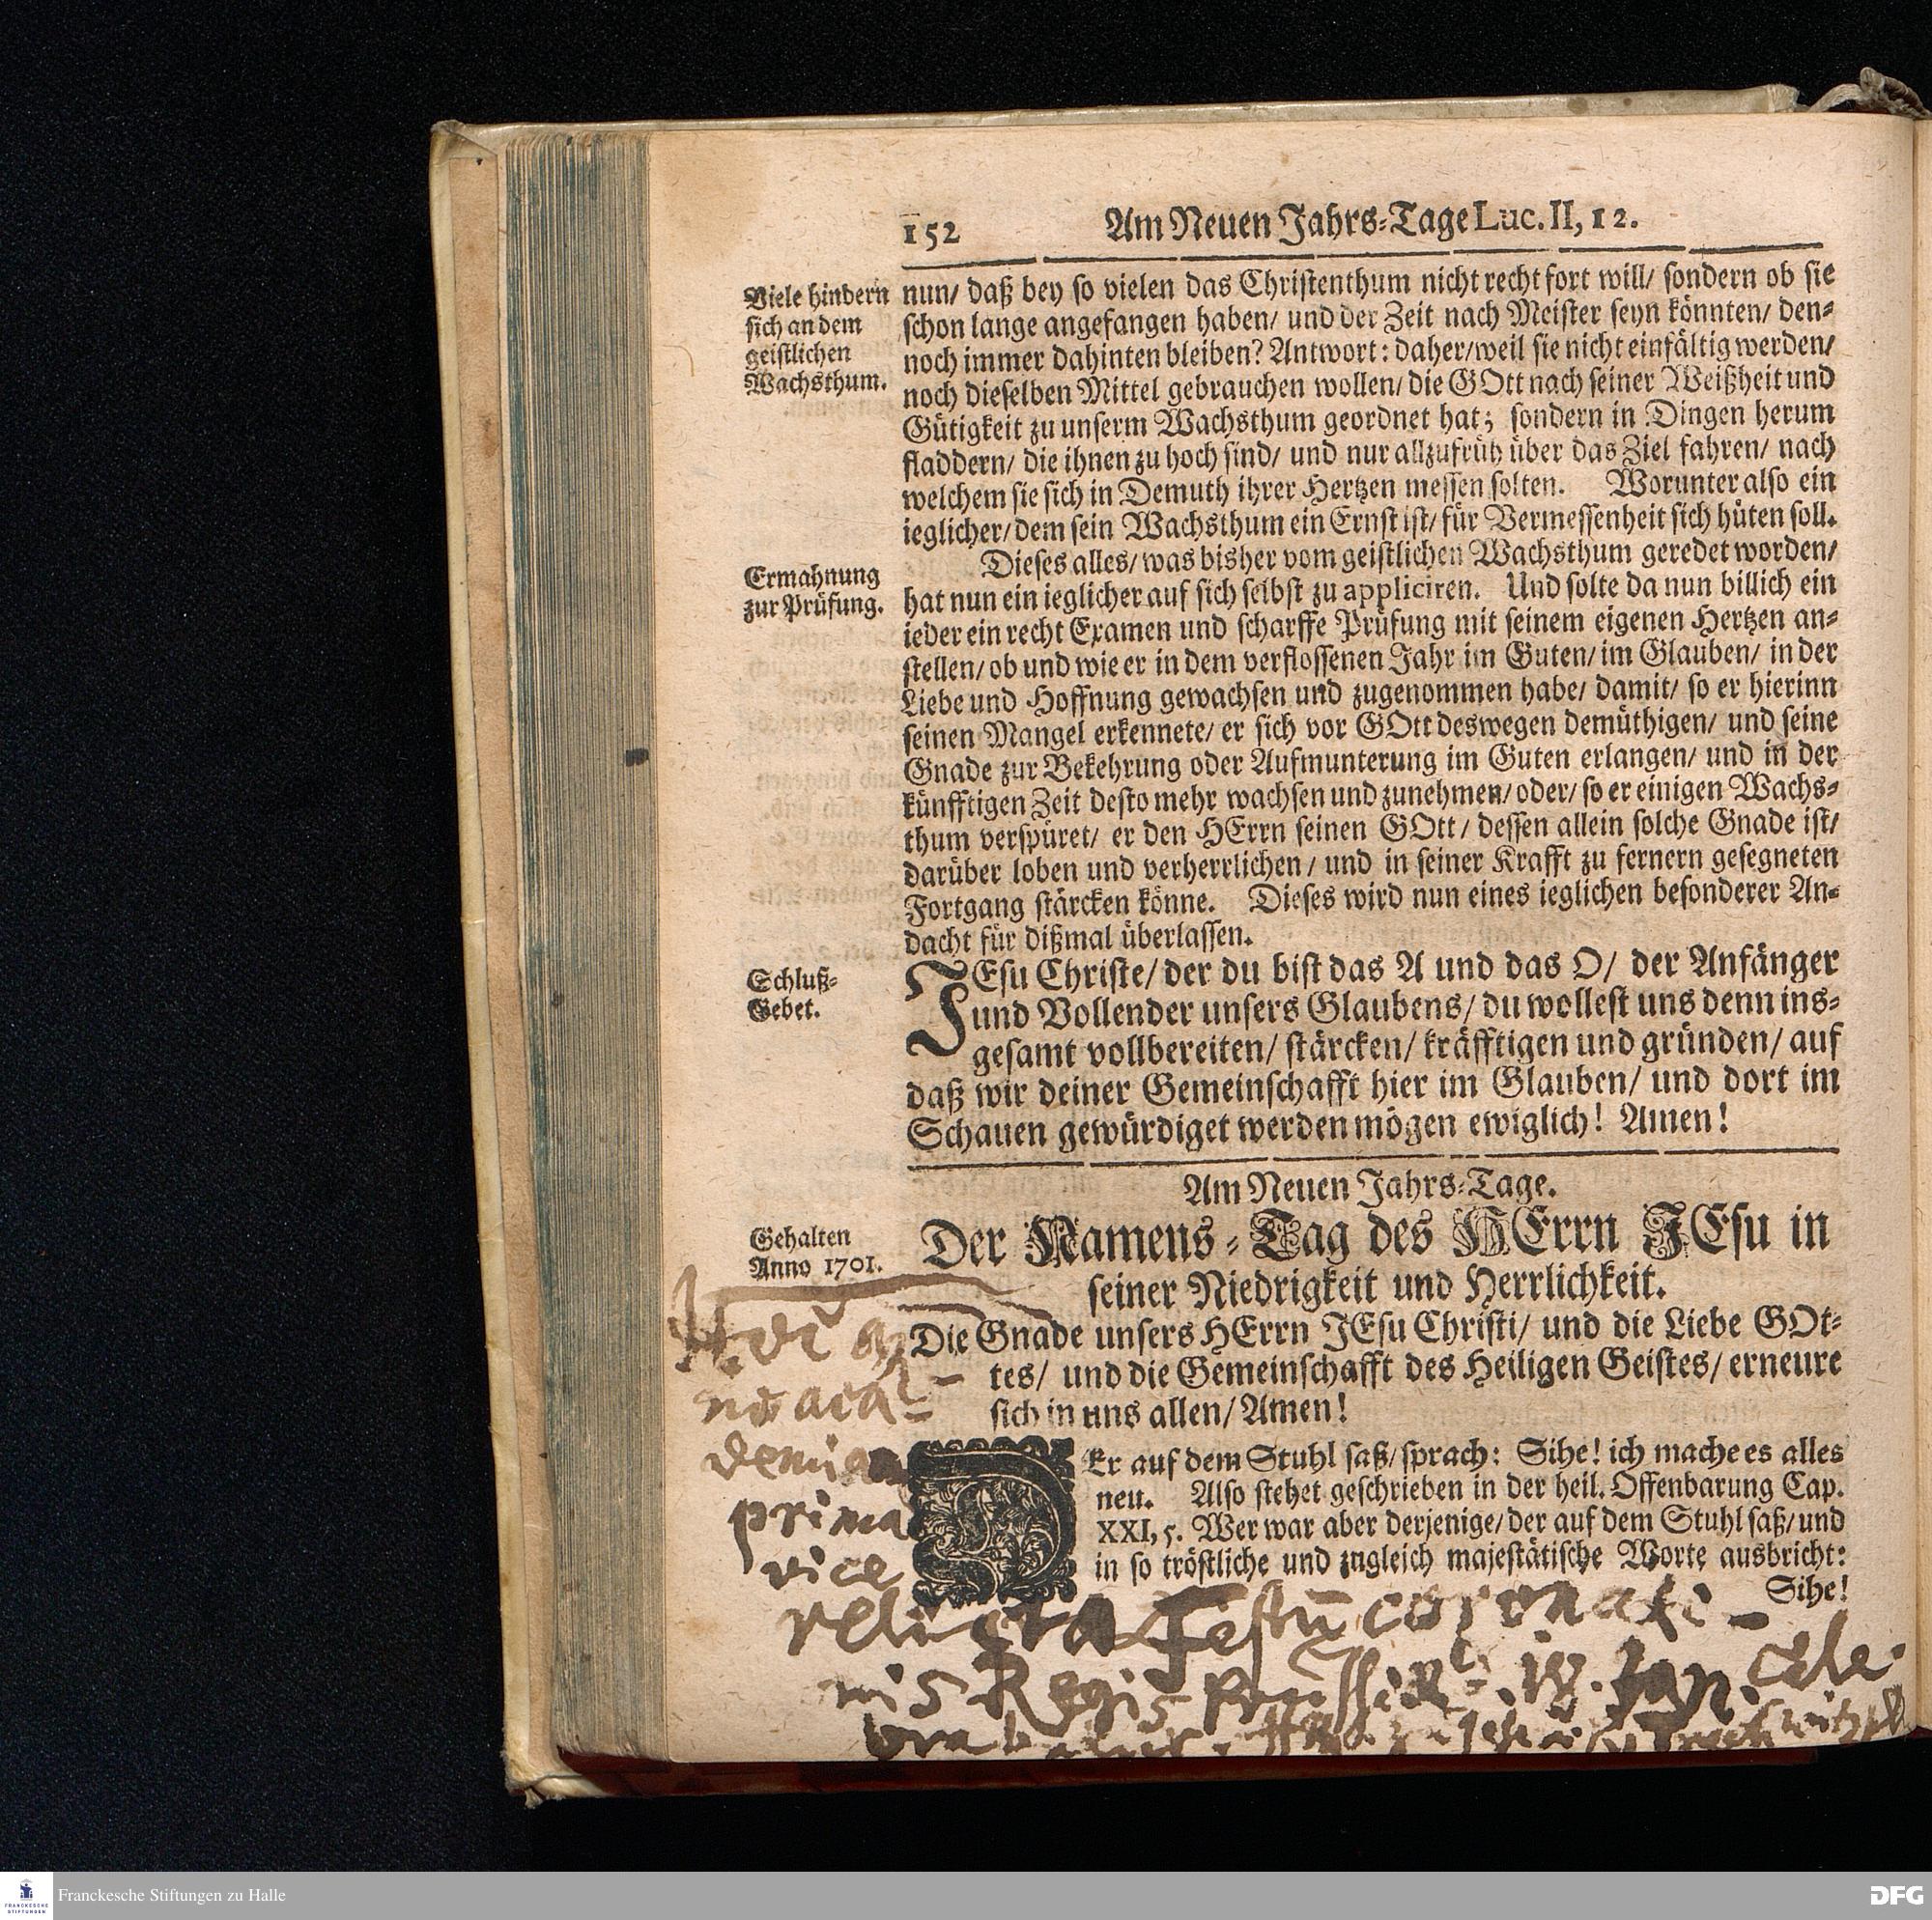 152 Am Neuen Jahrs-Tage Luc. II, 12.
Viele hindern
sich an dem
geistlichen
Wachsthum.
nun/ daß bey so vielen das Christenthum nicht recht fort will/ sondern ob sie
schon lange angefangen haben/ und der Zeit nach Meister seyn könnten/ den-
noch immer dahinten bleiben? Antwort: daher/ weil sie nicht einfältig werden/
noch dieselben Mittel gebrauchen wollen/ die GOtt nach seiner Weißheit und
Gütigkeit zu unserm Wachsthum geordnet hat; sondern in Dingen herum
fladdern/ die ihnen zu hoch sind/ und nur allzufrüh über das Ziel fahren/ nach
welchem sie sich in Demuth ihrer Hertzen messen solten. Worunter also ein
ieglicher/ dem sein Wachsthum ein Ernst ist/ für Vermessenheit sich hüten soll.
Ermahnung
zur Prüfung.
Dieses alles/ was bisher vom geistlichen Wachsthum geredet worden/
hat nun ein ieglicher auf sich selbst zu appliciren. Und solte da nun billich ein
ieder ein recht Examen und scharffe Prüfung mit seinem eigenen Hertzen an-
stellen/ ob und wie er in dem verflossenen Jahr im Guten/ im Glauben/ in der
Liebe und Hoffnung gewachsen und zugenommen habe/ damit/ so er hierinn
seinen Mangel erkennete/ er sich vor GOtt deswegen demüthigen/ und seine
Gnade zur Bekehrung oder Aufmunterung im Guten erlangen/ und in der
künfftigen Zeit desto mehr wachsen und zunehmen/ oder/ so er einigen Wachs-
thum verspüret/ er den HErrn seinen GOtt/ dessen allein solche Gnade ist/
darüber loben und verherrlichen/ und in seiner Krafft zu fernern gesegneten
Fortgang stärcken könne. Dieses wird nun eines ieglichen besonderer An-
dacht für dißmal überlassen.
Schluß-
Gebet.
JEsu Christe/ der du bist das A und das O/ der Anfänger
und Vollender unsers Glaubens/ du wollest uns denn ins-
gesamt vollbereiten/ stärcken/ kräfftigen und gründen/ auf
daß wir deiner Gemeinschafft hier im Glauben/ und dort im
Schauen gewürdiget werden mögen ewiglich! Amen!
Am Neuen Jahrs-Tage.
Gehalten
Anno 1701.
Der Namens-Tag des HErrn JEsu in
seiner Niedrigkeit und Herrlichkeit.
Die Gnade unsers HErrn JEsu Christi/ und die Liebe GOt-
tes/ und die Gemeinschafft des Heiligen Geistes/ erneure
sich in uns allen/ Amen!
DEr auf dem Stuhl saß/ sprach: Sihe! ich mache es alles
neu. Also stehet geschrieben in der heil. Offenbarung Cap.
XXI, 5. Wer war aber derjenige/ der auf dem Stuhl saß/ und
in so tröstliche und zugleich majestätische Worte ausbricht:
Sihe!
aca-
prima
vice
relicta Festū coronatio-
nis Regis 18. Jan. cele-
Franckesche Stiftungen zu Halle
FRANCKESCHE
STIFTUNGEN
DFG